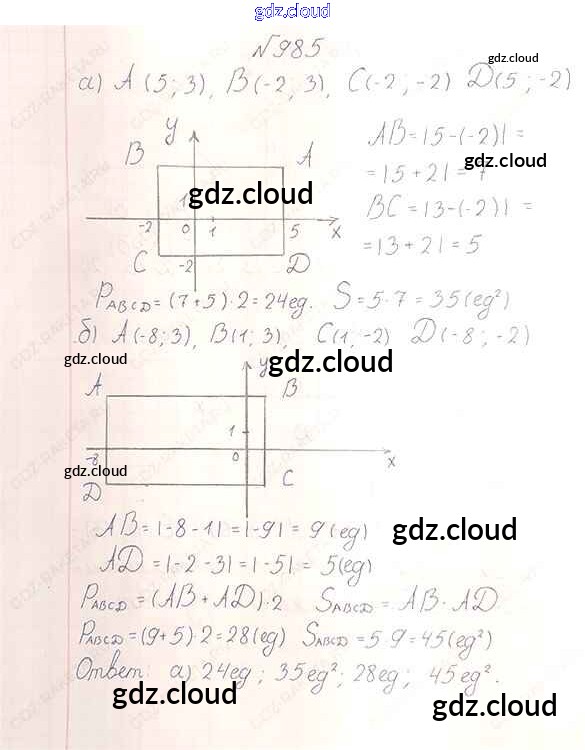 gdz.cloud
№985
gdz.cloud
а) A (5; 3), B(-2; 3), C(-2; -2) D(5; -2)
y
AB = |5-(-2)| =
B A
gdz.cloud
= |5+2| = 7
gdz.cloud
1
BC = |3-(-2)| =
-2 0 1 5 x
= |3+2| = 5
C -2 D
P ABCD = (7+5)·2 = 24 ед. S = 5·7 = 35 (ед²)
б) A(-8; 3), B(1; 3), C(1; -2) D(-8; -2)
gdz.cloud
gdz.cloud
y
A B
1
-8 0 x
gdz.cloud
D C
AB = |-8-1| = |-9| = 9 (ед)
gdz.cloud
AD = |-2-3| = |-5| = 5 (ед)
P ABCD = (AB + AD)·2 S ABCD = AB · AD
gdz.cloud
P ABCD = (9+5)·2 = 28 (ед) S ABCD = 5·9 = 45 (ед²)
Ответ: а) 24 ед; 35 ед²; 28 ед; 45 ед².
gdz.cloud
gdz.cloud